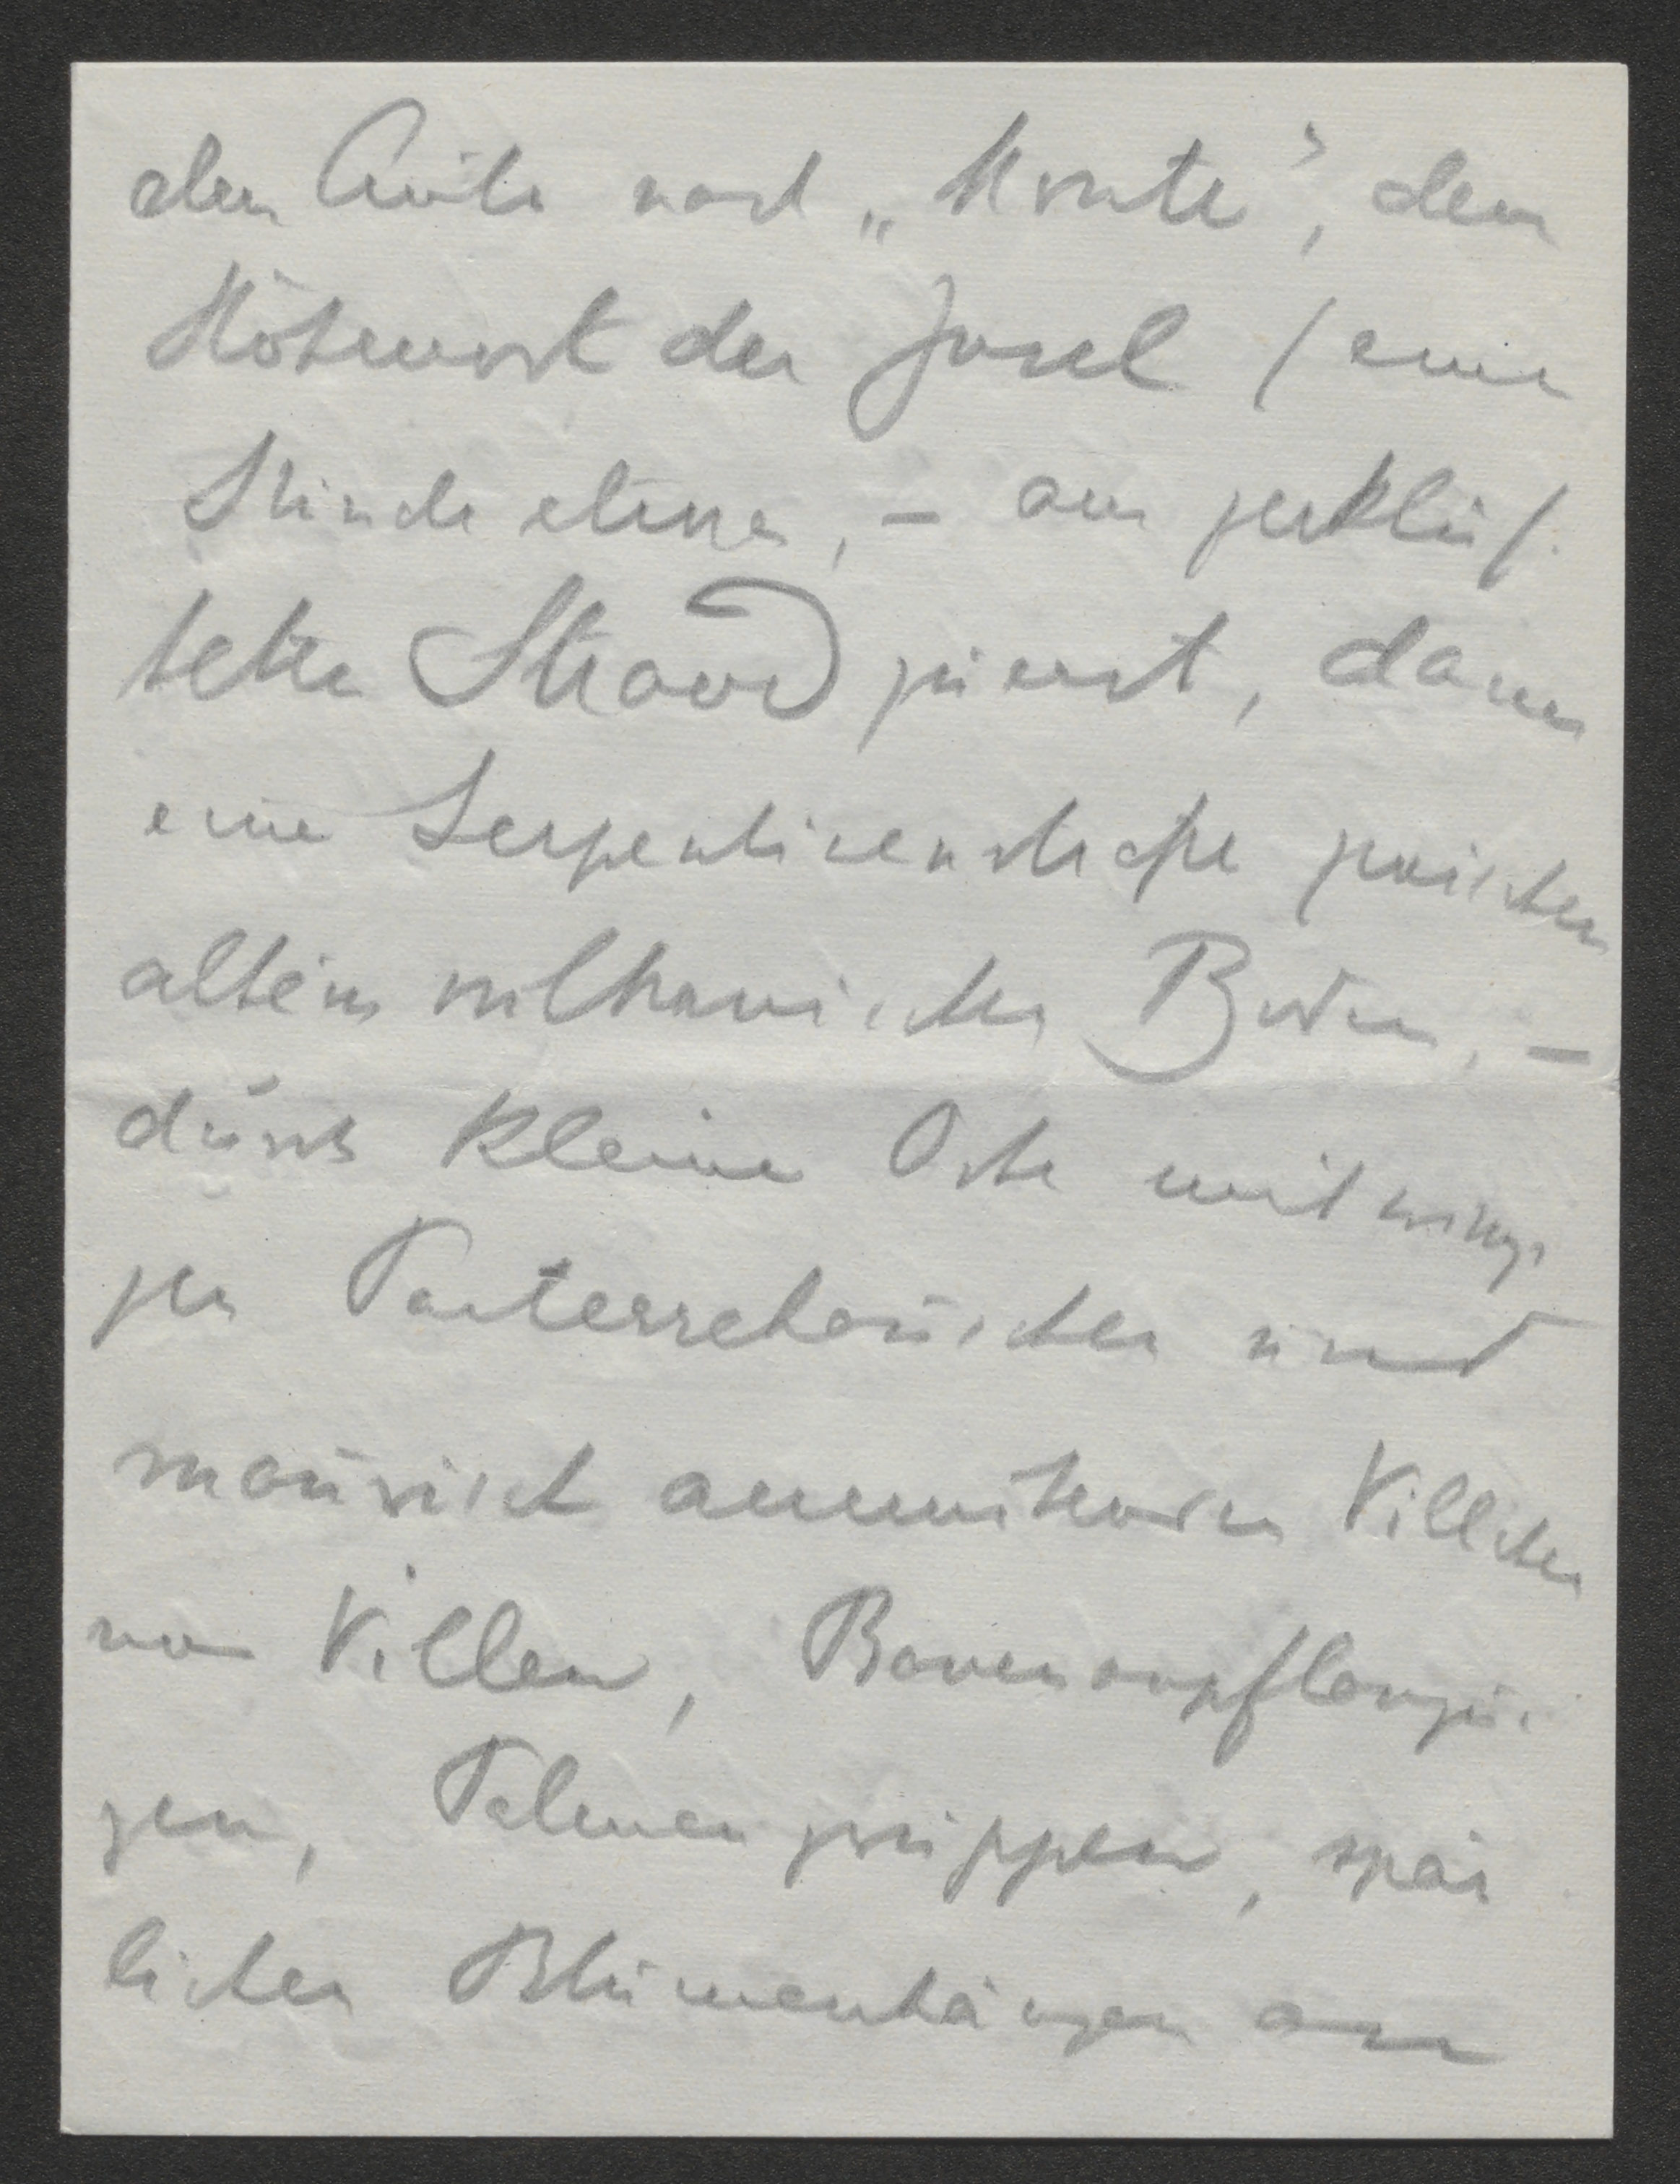 dem Auto nach „Monte“, dem
Höhenort der Insel / eine
Stunde etwa, – am zerklüf-
teten Strand zuerst, dann
eine Serpentinenstraße zwischen
altem vulkanischen Boden, –
durch kleine Orte mit winzi-
gen Parterrehäuschen und
maurisch anmutenden Villchen
von Villen, Bananenpflanzun-
gen, Palmengruppen, spär
lichen Blumenhängen am